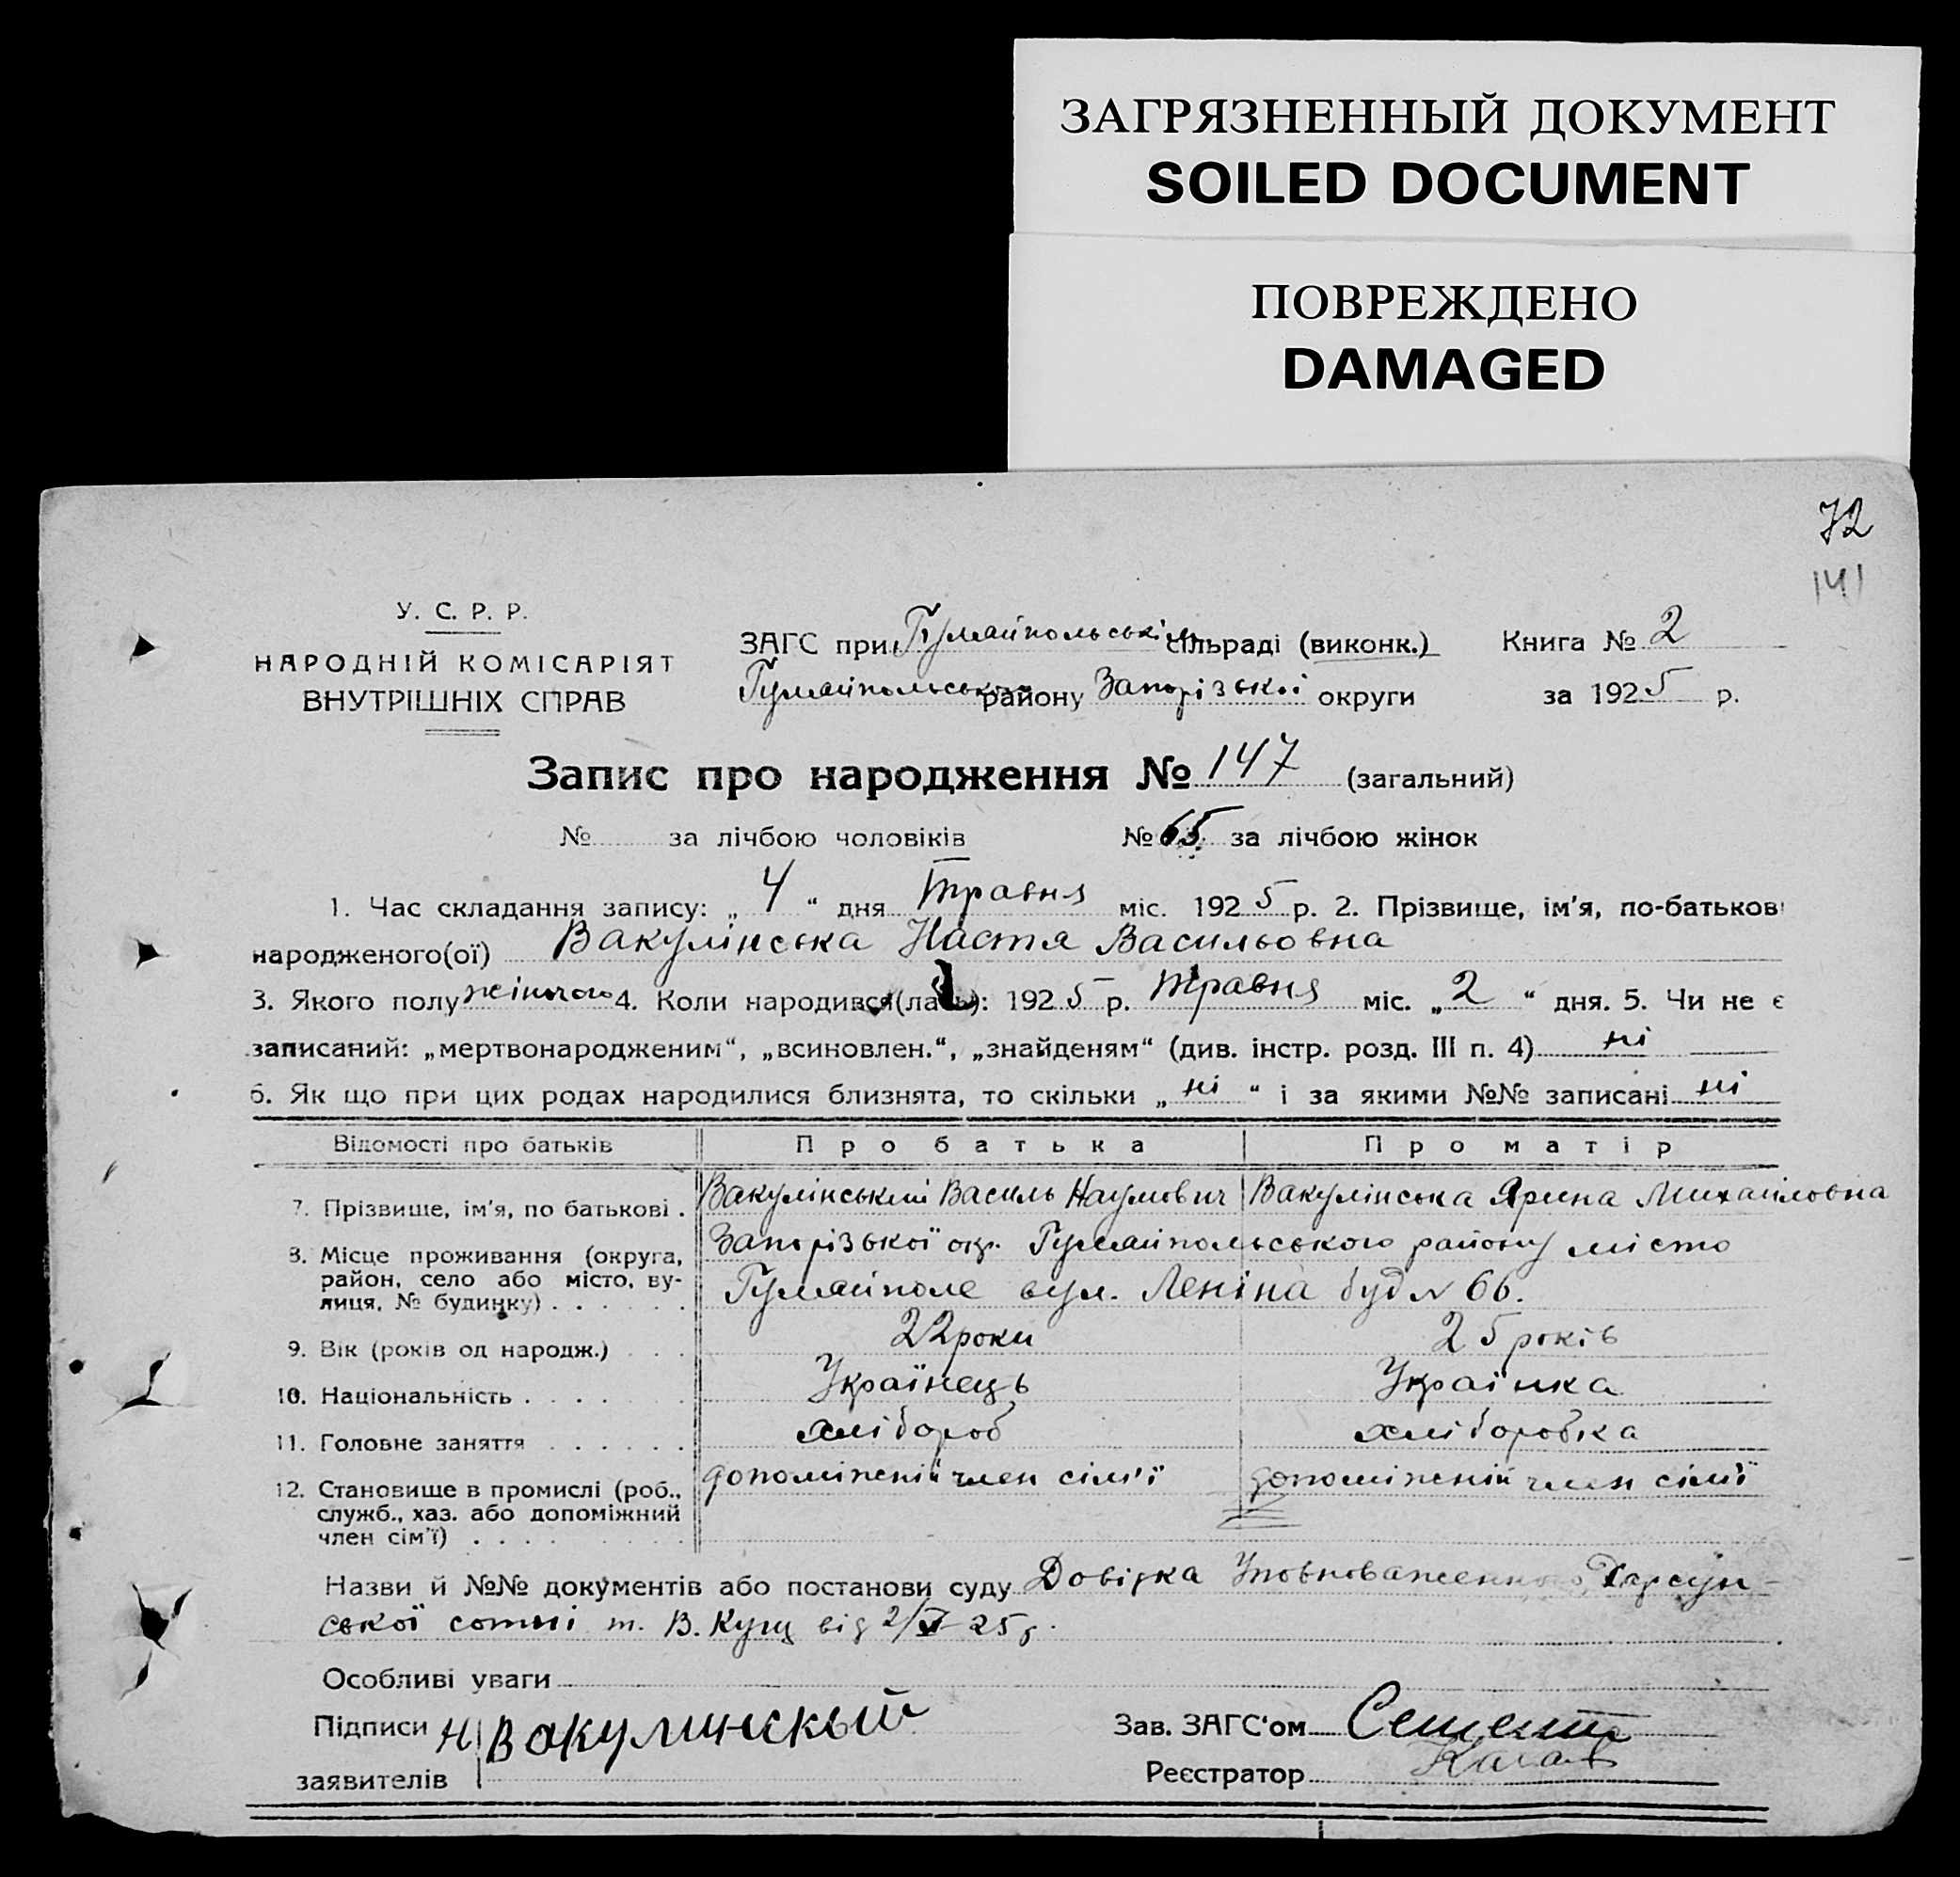 ЗАГРЯЗНЕННЫЙ ДОКУМЕНТ
SOILED DOCUMENT
ПОВРЕЖДЕНО
DAMAGED
72
141
У. С. Р. Р.
НАРОДНІЙ КОМІСАРІЯТ
ВНУТРІШНІХ СПРАВ
ЗАГС при Гуляйпольськім сільраді (виконк.) Книга № 2
Гуляйпольського району Запорізької округи за 1925 р.
Запис про народження № 147 (загальний)
№ за лічбою чоловіків № 65 за лічбою жінок
1. Час складання запису: „4“ дня Травня міс. 1925 р. 2. Прізвище, ім'я, по-батькові
народженого(ої) Вакулінська Настя Васильовна
3. Якого полу жіночого 4. Коли народився(лась): 1925 р. Травня міс. „2“ дня. 5. Чи не є
записаний: „мертвонародженим“, „всиновлен.“, „знайденям“ (див. інстр. розд. III п. 4) ні
6. Як що при цих родах народилися близнята, то скільки „ні“ і за якими №№ записані ні
Відомості про батьків Про батька Про матір
7. Прізвище, ім'я, по батькові . Вакулінський Василь Наумович Вакулінська Ярина Михайловна
8. Місце проживання (округа, Запорізької окр. Гуляйпольського району місто
район, село або місто, ву-
лиця, № будинку) . . . . . . Гуляйполе вул. Леніна буд № 66.
9. Вік (років од народж.) . . . 22 роки 25 років
10. Національність . . . . . . Українець Українка
11. Головне заняття . . . . . . хлібороб хліборобка
12. Становище в промислі (роб., допоміжній член сім'ї допоміжній член сім'ї
служб., хаз. або допоміжний
член сім'ї) . . . .
Назви й №№ документів або постанови суду Довідка Уповноваженного
ської сотні т. В. Кущ від 2/V 25 р.
Особливі уваги
Підписи Н Вакулинский Зав. ЗАГС'ом
заявителів Реєстратор